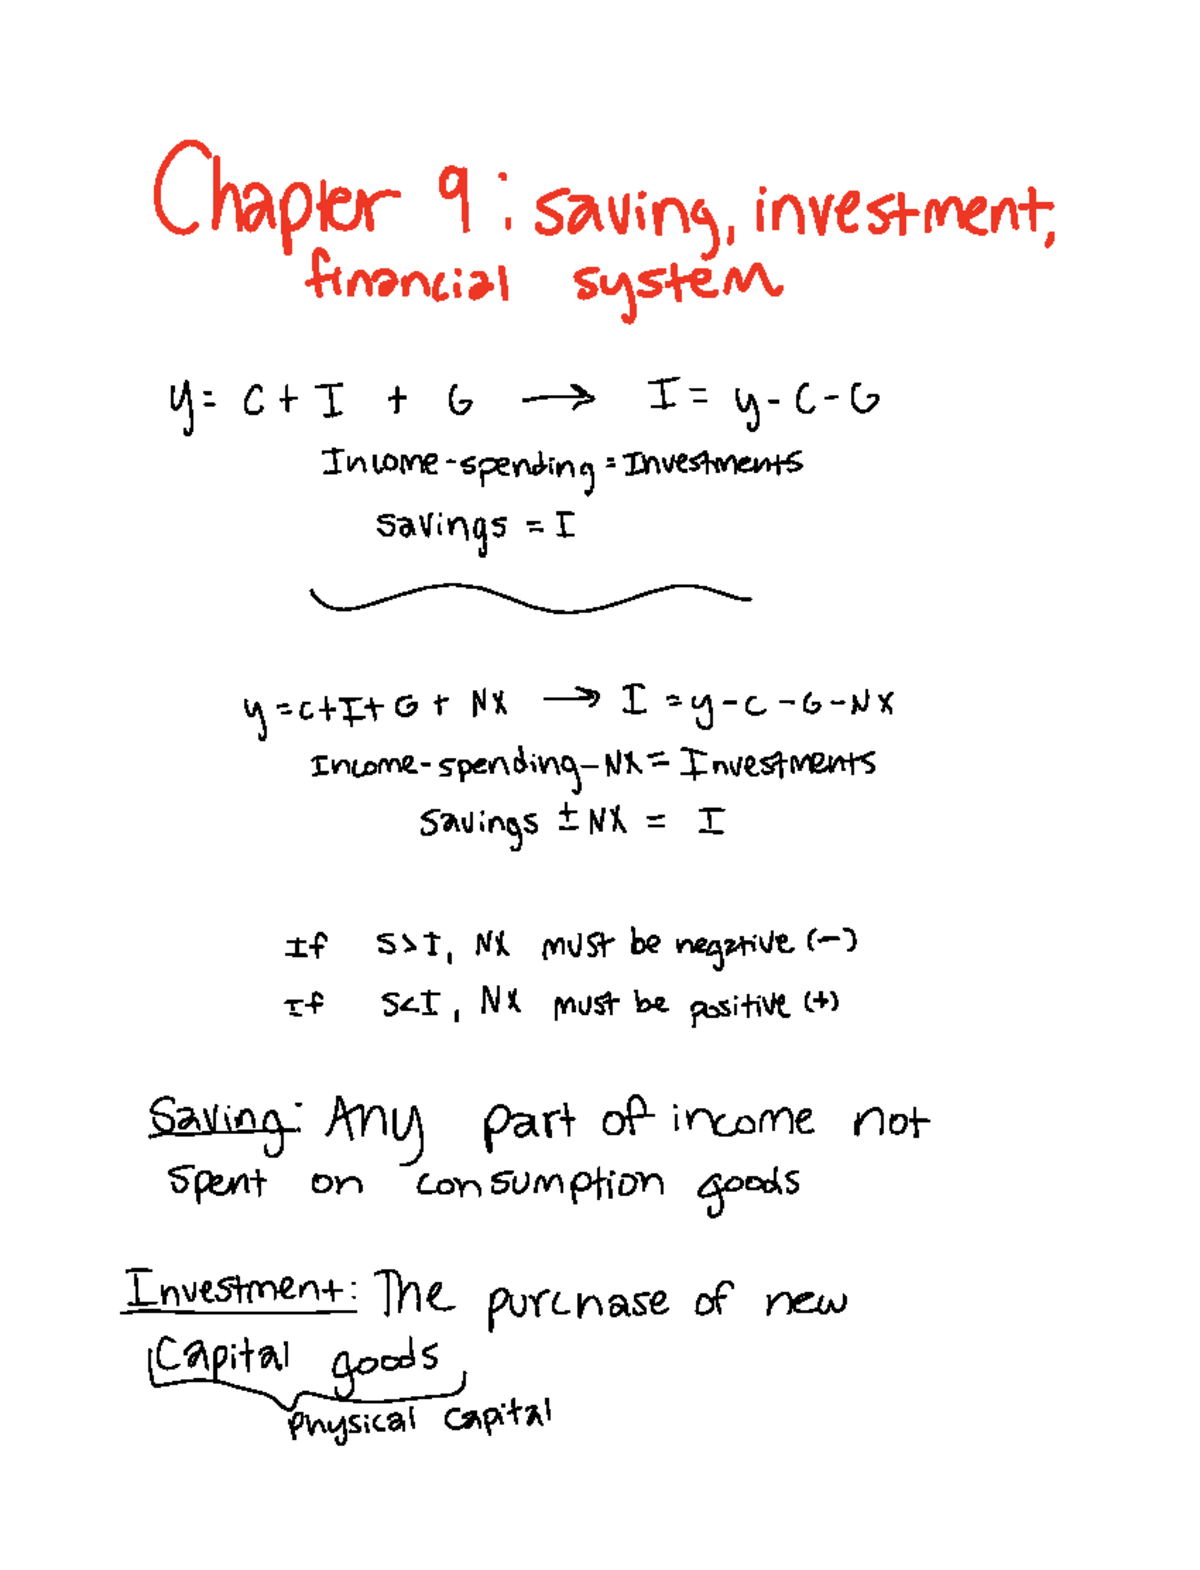 Chapter 9: saving, investment,
financial system
y = C + I + G → I = y - C - G
Income - spending = Investments
savings = I
y = C + I + G + NX → I = y - C - G - NX
Income - spending - NX = Investments
Savings ± NX = I
If S > I, NX must be negative (-)
If S < I, NX must be positive (+)
Saving: Any part of income not
spent on consumption goods
Investment: The purchase of new
Capital goods
physical capital